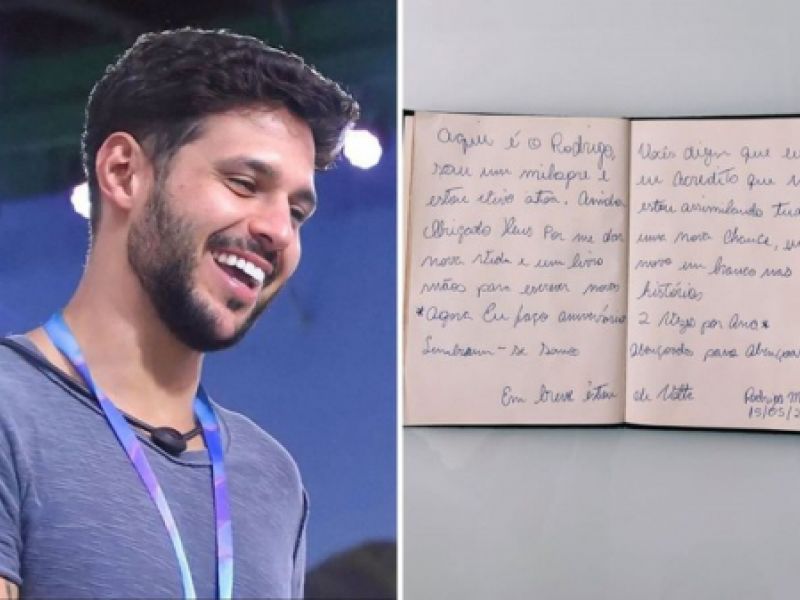 Aqui é o Rodrigo,
sou um milagre e
estou vivo
Obrigado Deus Por me dar
nova vida e um livro
mãos para escrever novas
*Agora Eu faço aniversário
Lembram-se Somos
Em breve estou
Vocês dizem que eu
eu Acredito que
estou assimilando tud
uma nova chance, um
novo em branco nas
histórias
2 Vezes por Ano*
Abençoados para Abençoar
de Volta
Rodrigo M
15/05/2